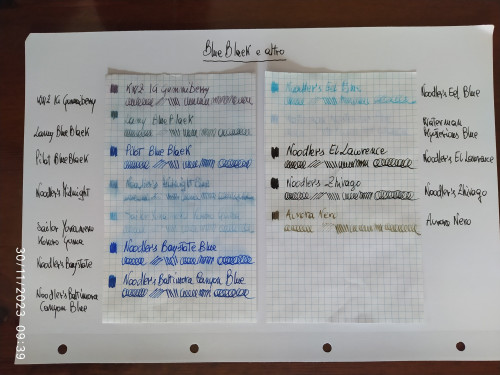 Blue Black e altro
KWZ IG Gummiberry
Lamy Blue Black
Pilot Blue Black
Noodler's Midnight
Sailor Yurameku
Noodler's Baystate
Noodler's Baltimora
Canyon Blue
KWZ IG Gummiberry
Lamy Blue Black
Pilot Blue Black
Noodler's Midnight Blue
Sailor
Noodler's Baystate Blue
Noodler's Baltimora Canyon Blue
Noodler's Eel Blue
Noodler's El Lawrence
Noodler's Zhivago
Aurora Nero
Noodler's Eel Blue
Waterman
Mysterious Blue
Noodler's El Lawrence
Noodler's Zhivago
Aurora Nero
30/11/2023 09:39